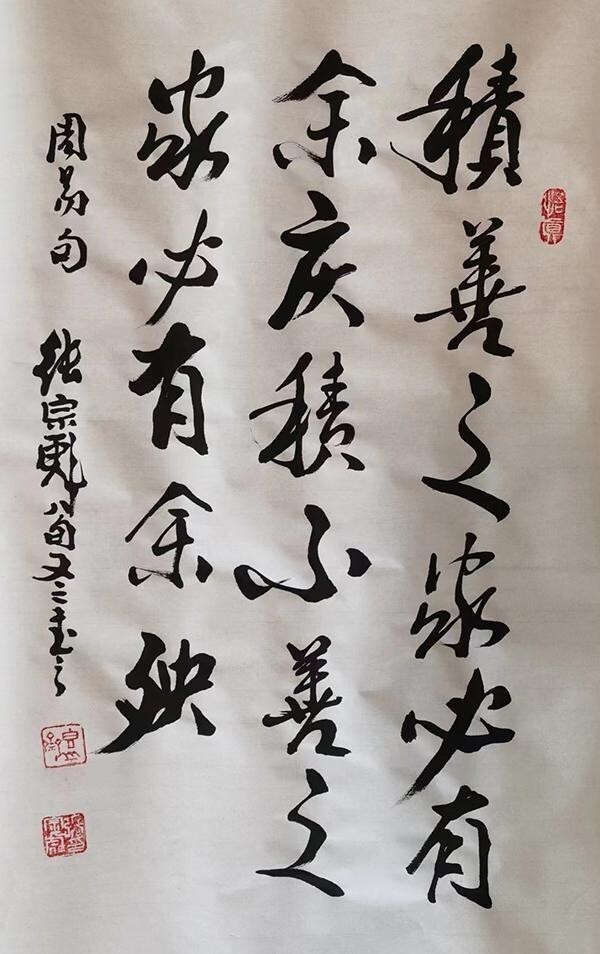 積善之家必有
余庆積不善之
家必有余殃
周易句
張宗彪八旬又二书之